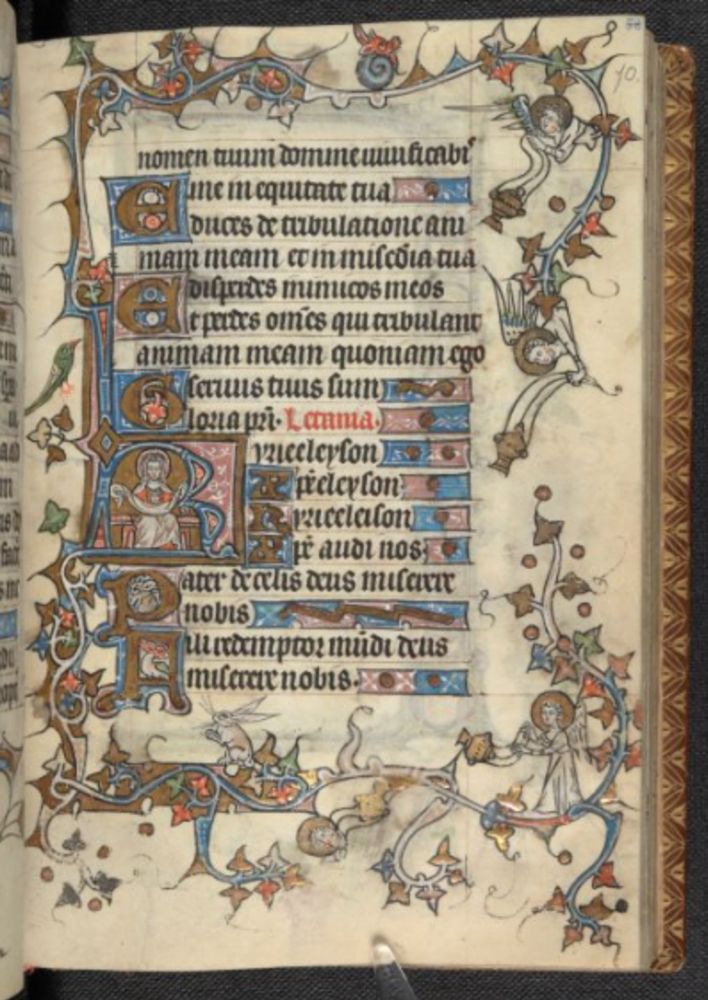 10.
nomen tuum domine uiuificabis
me in equitate tua
Educes de tribulatione ani
mam meam et in misc̄dia tua
disperdes inimicos meos
Et perdes om̄es qui tribulant
animam meam quoniam ego
seruus tuus sum
Gloria pr̄i. Letania.
Kyrieeleyson
xp̄eleyson
Kyrieeleison
xp̄e audi nos
Pater de celis deus miserere
nobis
Fili redemptor mūdi deus
miserere nobis.